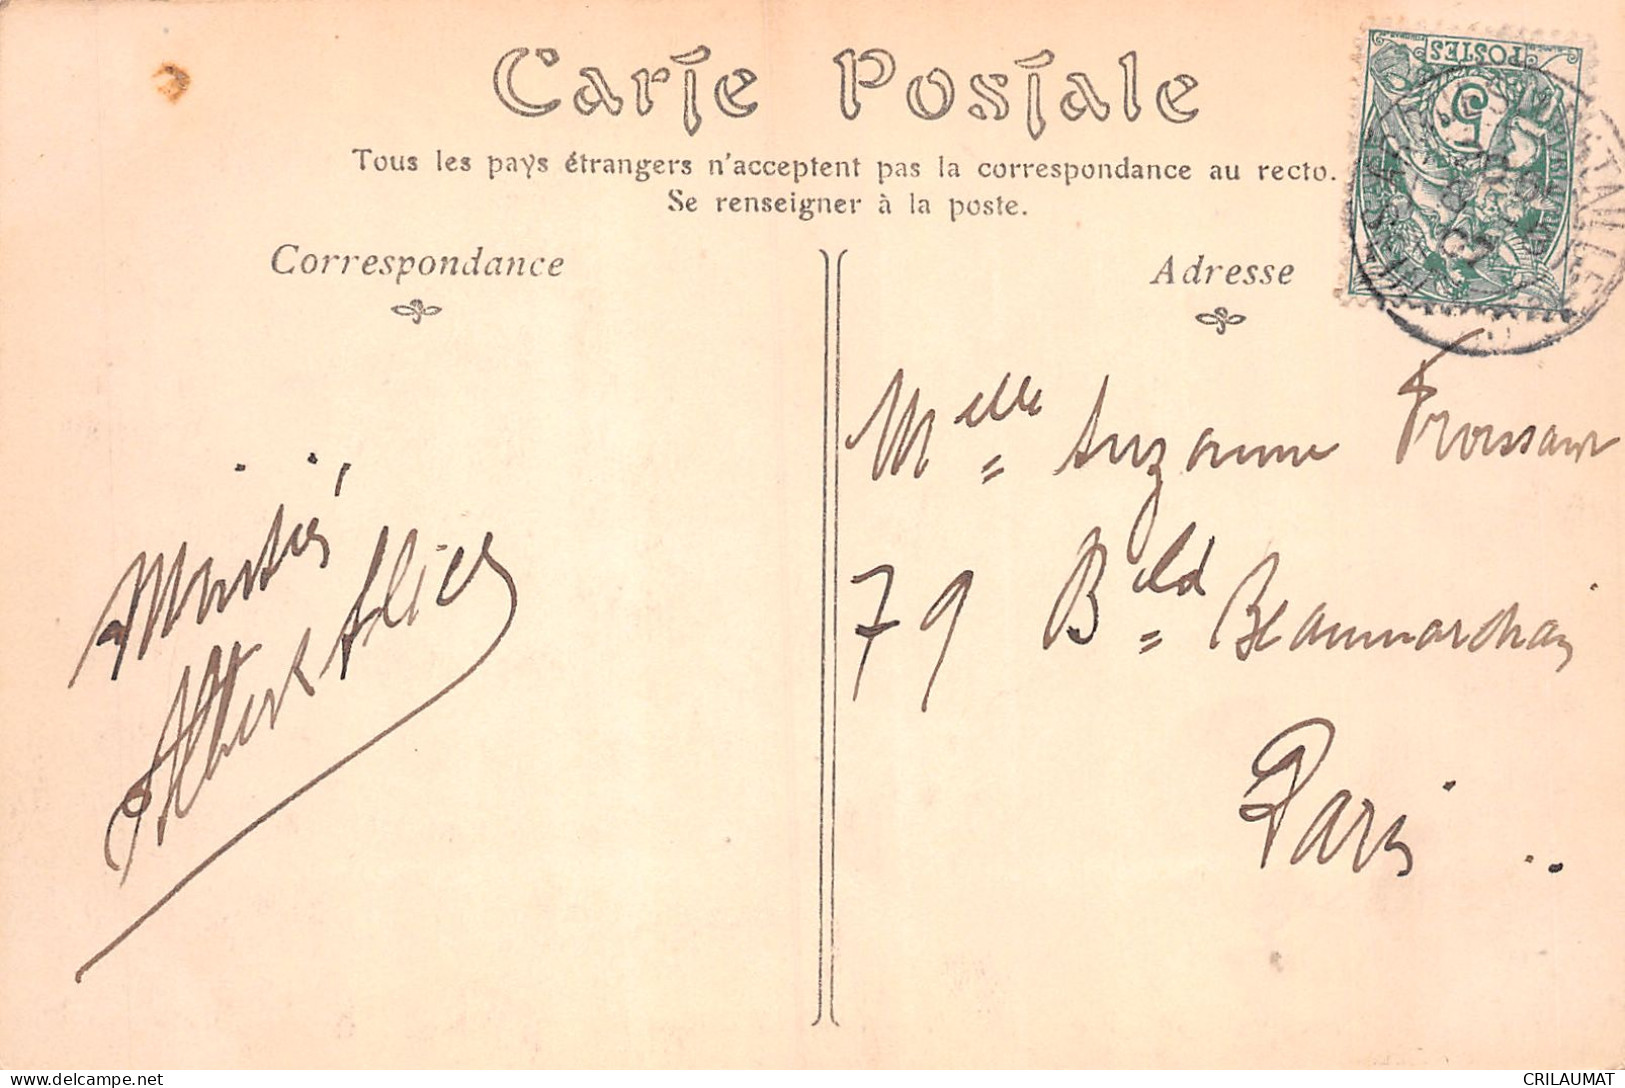 Carte Postale
Tous les pays étrangers n'acceptent pas la correspondance au recto.
Se renseigner à la poste.
Correspondance
Adresse
POSTES
5
Melle Suzanne Froissart
79 Bld Beaumarchais
Paris
Amitiés
Albert Alice
CRILAUMAT